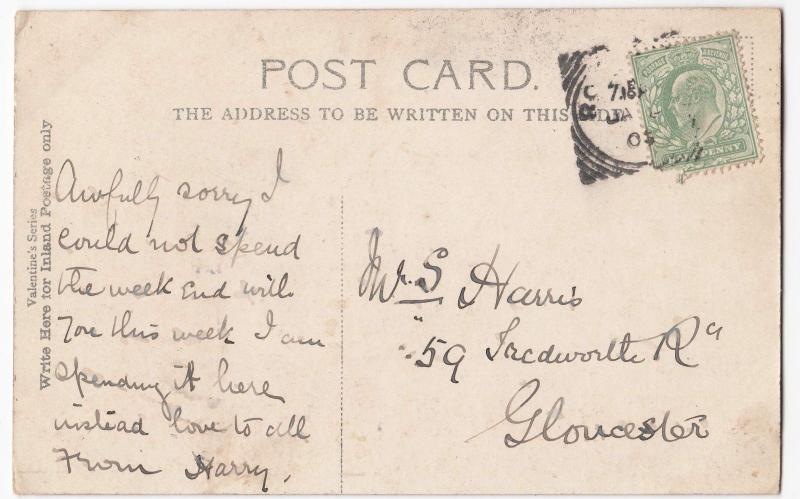 POST CARD.
THE ADDRESS TO BE WRITTEN ON THIS
Valentine's Series
Write Here for Inland Postage only
Awfully sorry I
could not spend
the week end with
you this week I am
spending it here
instead love to all
From Harry.
Mr. S Harris
59 Tredworth Rd
Gloucester
POSTAGE & REVENUE
PENNY